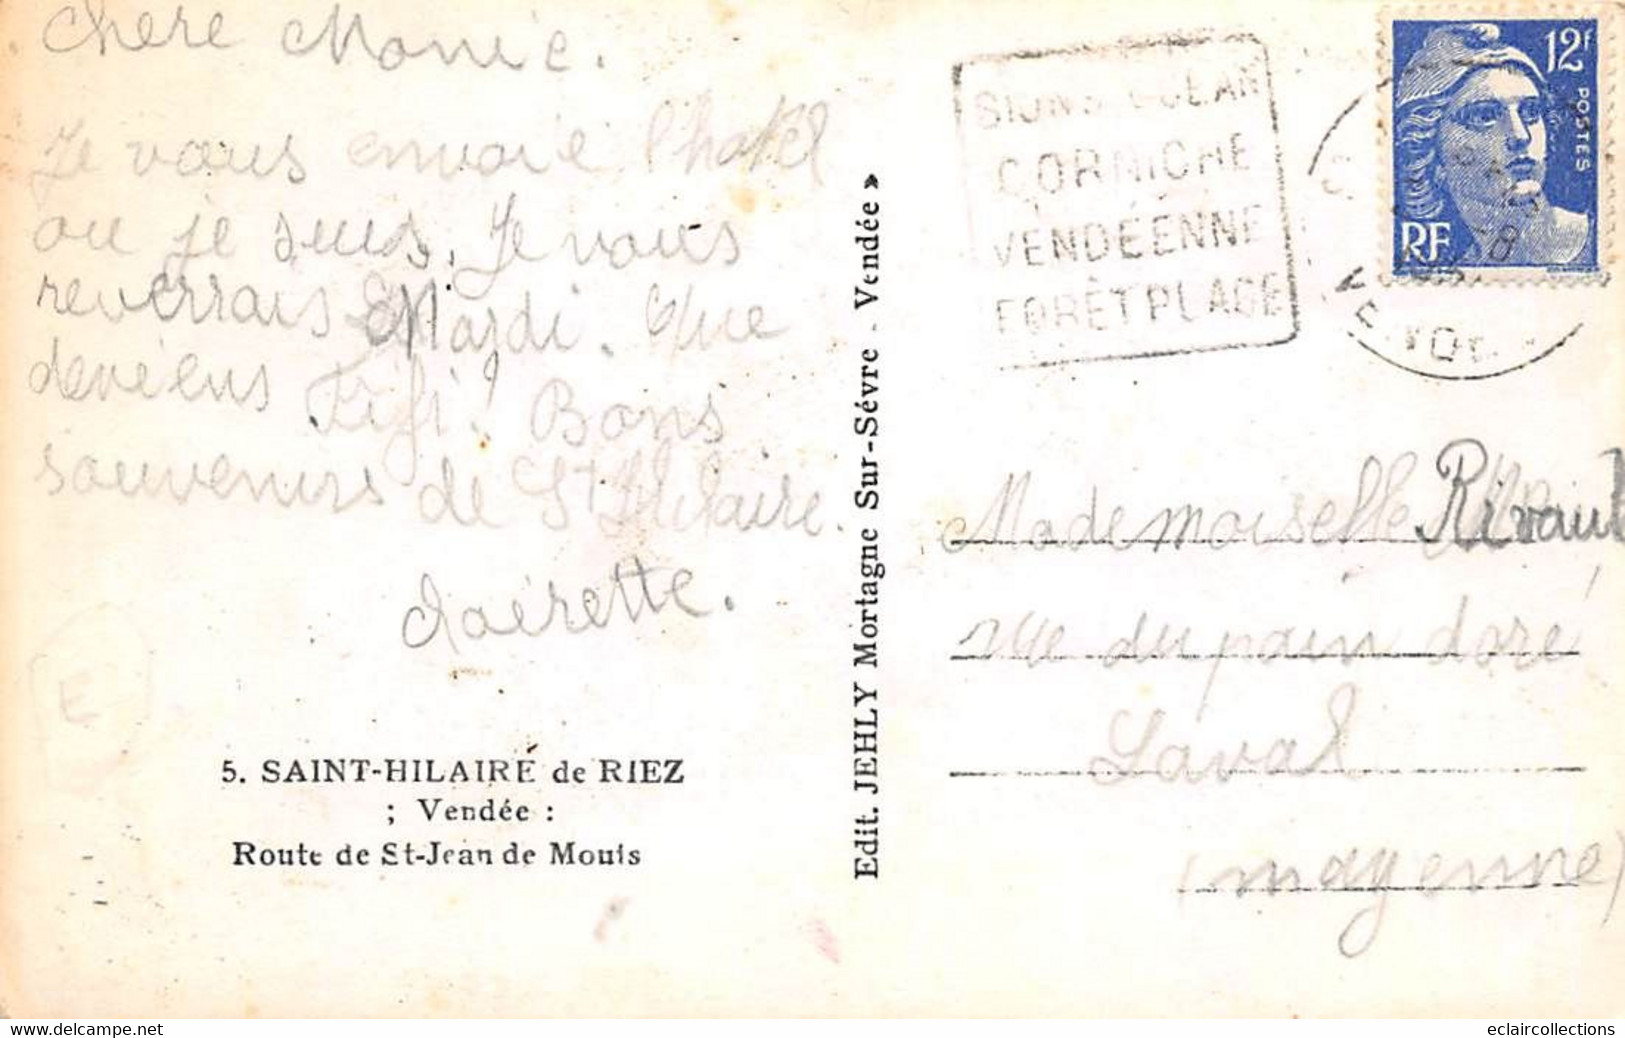 chere Monic.
Je vous envoie l'hotel
ou je suis. Je vous
reverrais Mardi. Que
deviens Fifi! Bons
souvenirs de St Hilaire.
Clairette.
E
5. SAINT-HILAIRE de RIEZ
; Vendée :
Route de St-Jean de Mouts
Edit. JEHLY Mortagne Sur-Sèvre . Vendée »
SION S/ OCEAN
CORNICHE
VENDÉENNE
FORÊT PLAGE
12F
POSTES
RF
Mademoiselle Rivault
rue du pain doré
Laval
(mayenne)
eclaircollections